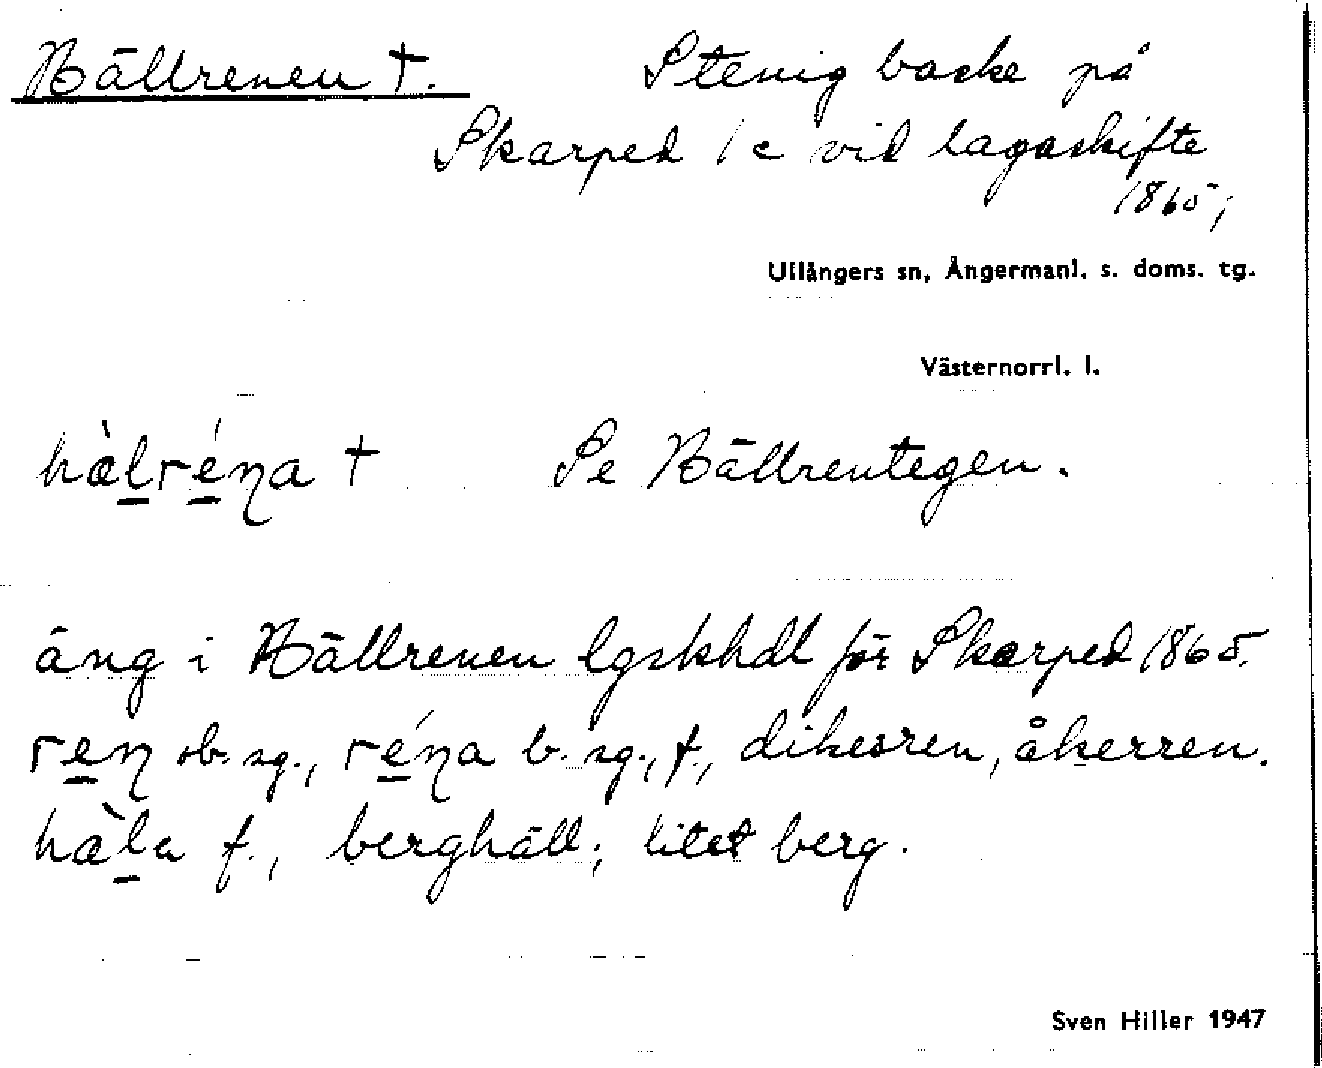 Hällrenen †. Stenig backe på
Skarped 1c vid lagaskifte
1865;
Ullångers sn, Ångermanl. s. doms. tg.
Västernorrl. l.
hæ̀lréna † Se Hällrentegen.
äng i Hällrenen lgskhdl för Skarped 1865.
ren ob. sg., réna b. sg., f., dikesren, åkerren.
hæ̀la f., berghäll; litet berg.
Sven Hiller 1947